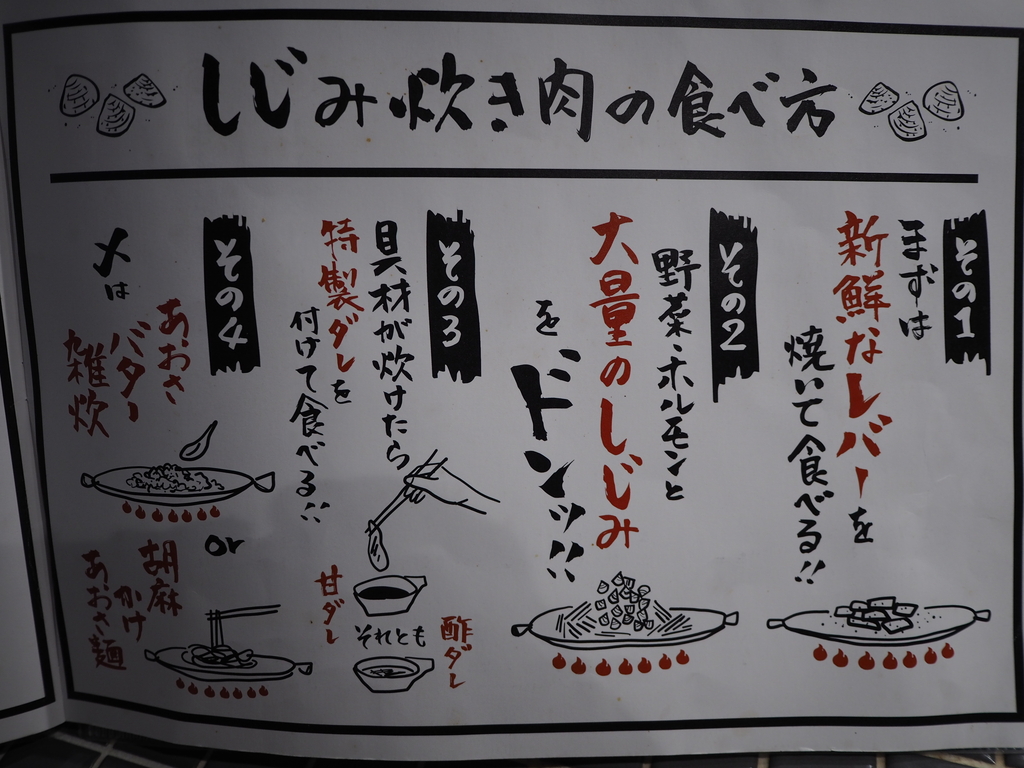 しじみ炊き肉の食べ方
その1
まずは
新鮮なレバーを
焼いて食べる!!
その2
野菜・ホルモンと
大量のしじみ
を
ドンッ!!
その3
具材が炊けたら
特製ダレを
付けて食べる!!
甘ダレ
それとも
酢ダレ
その4
〆は
あおさ
バター
雑炊
or
胡麻
かけ
あおさ麺